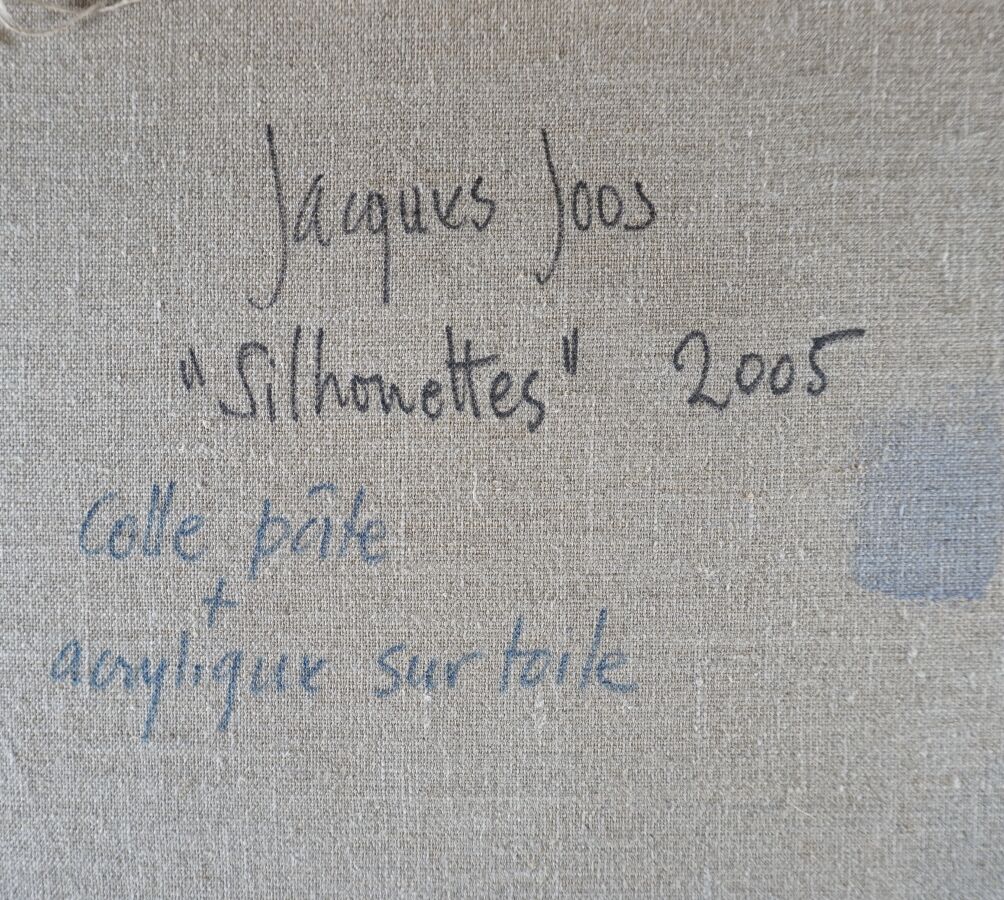 Jacques Joos
"Silhouettes" 2005
Colle pâte
+
acrylique sur toile